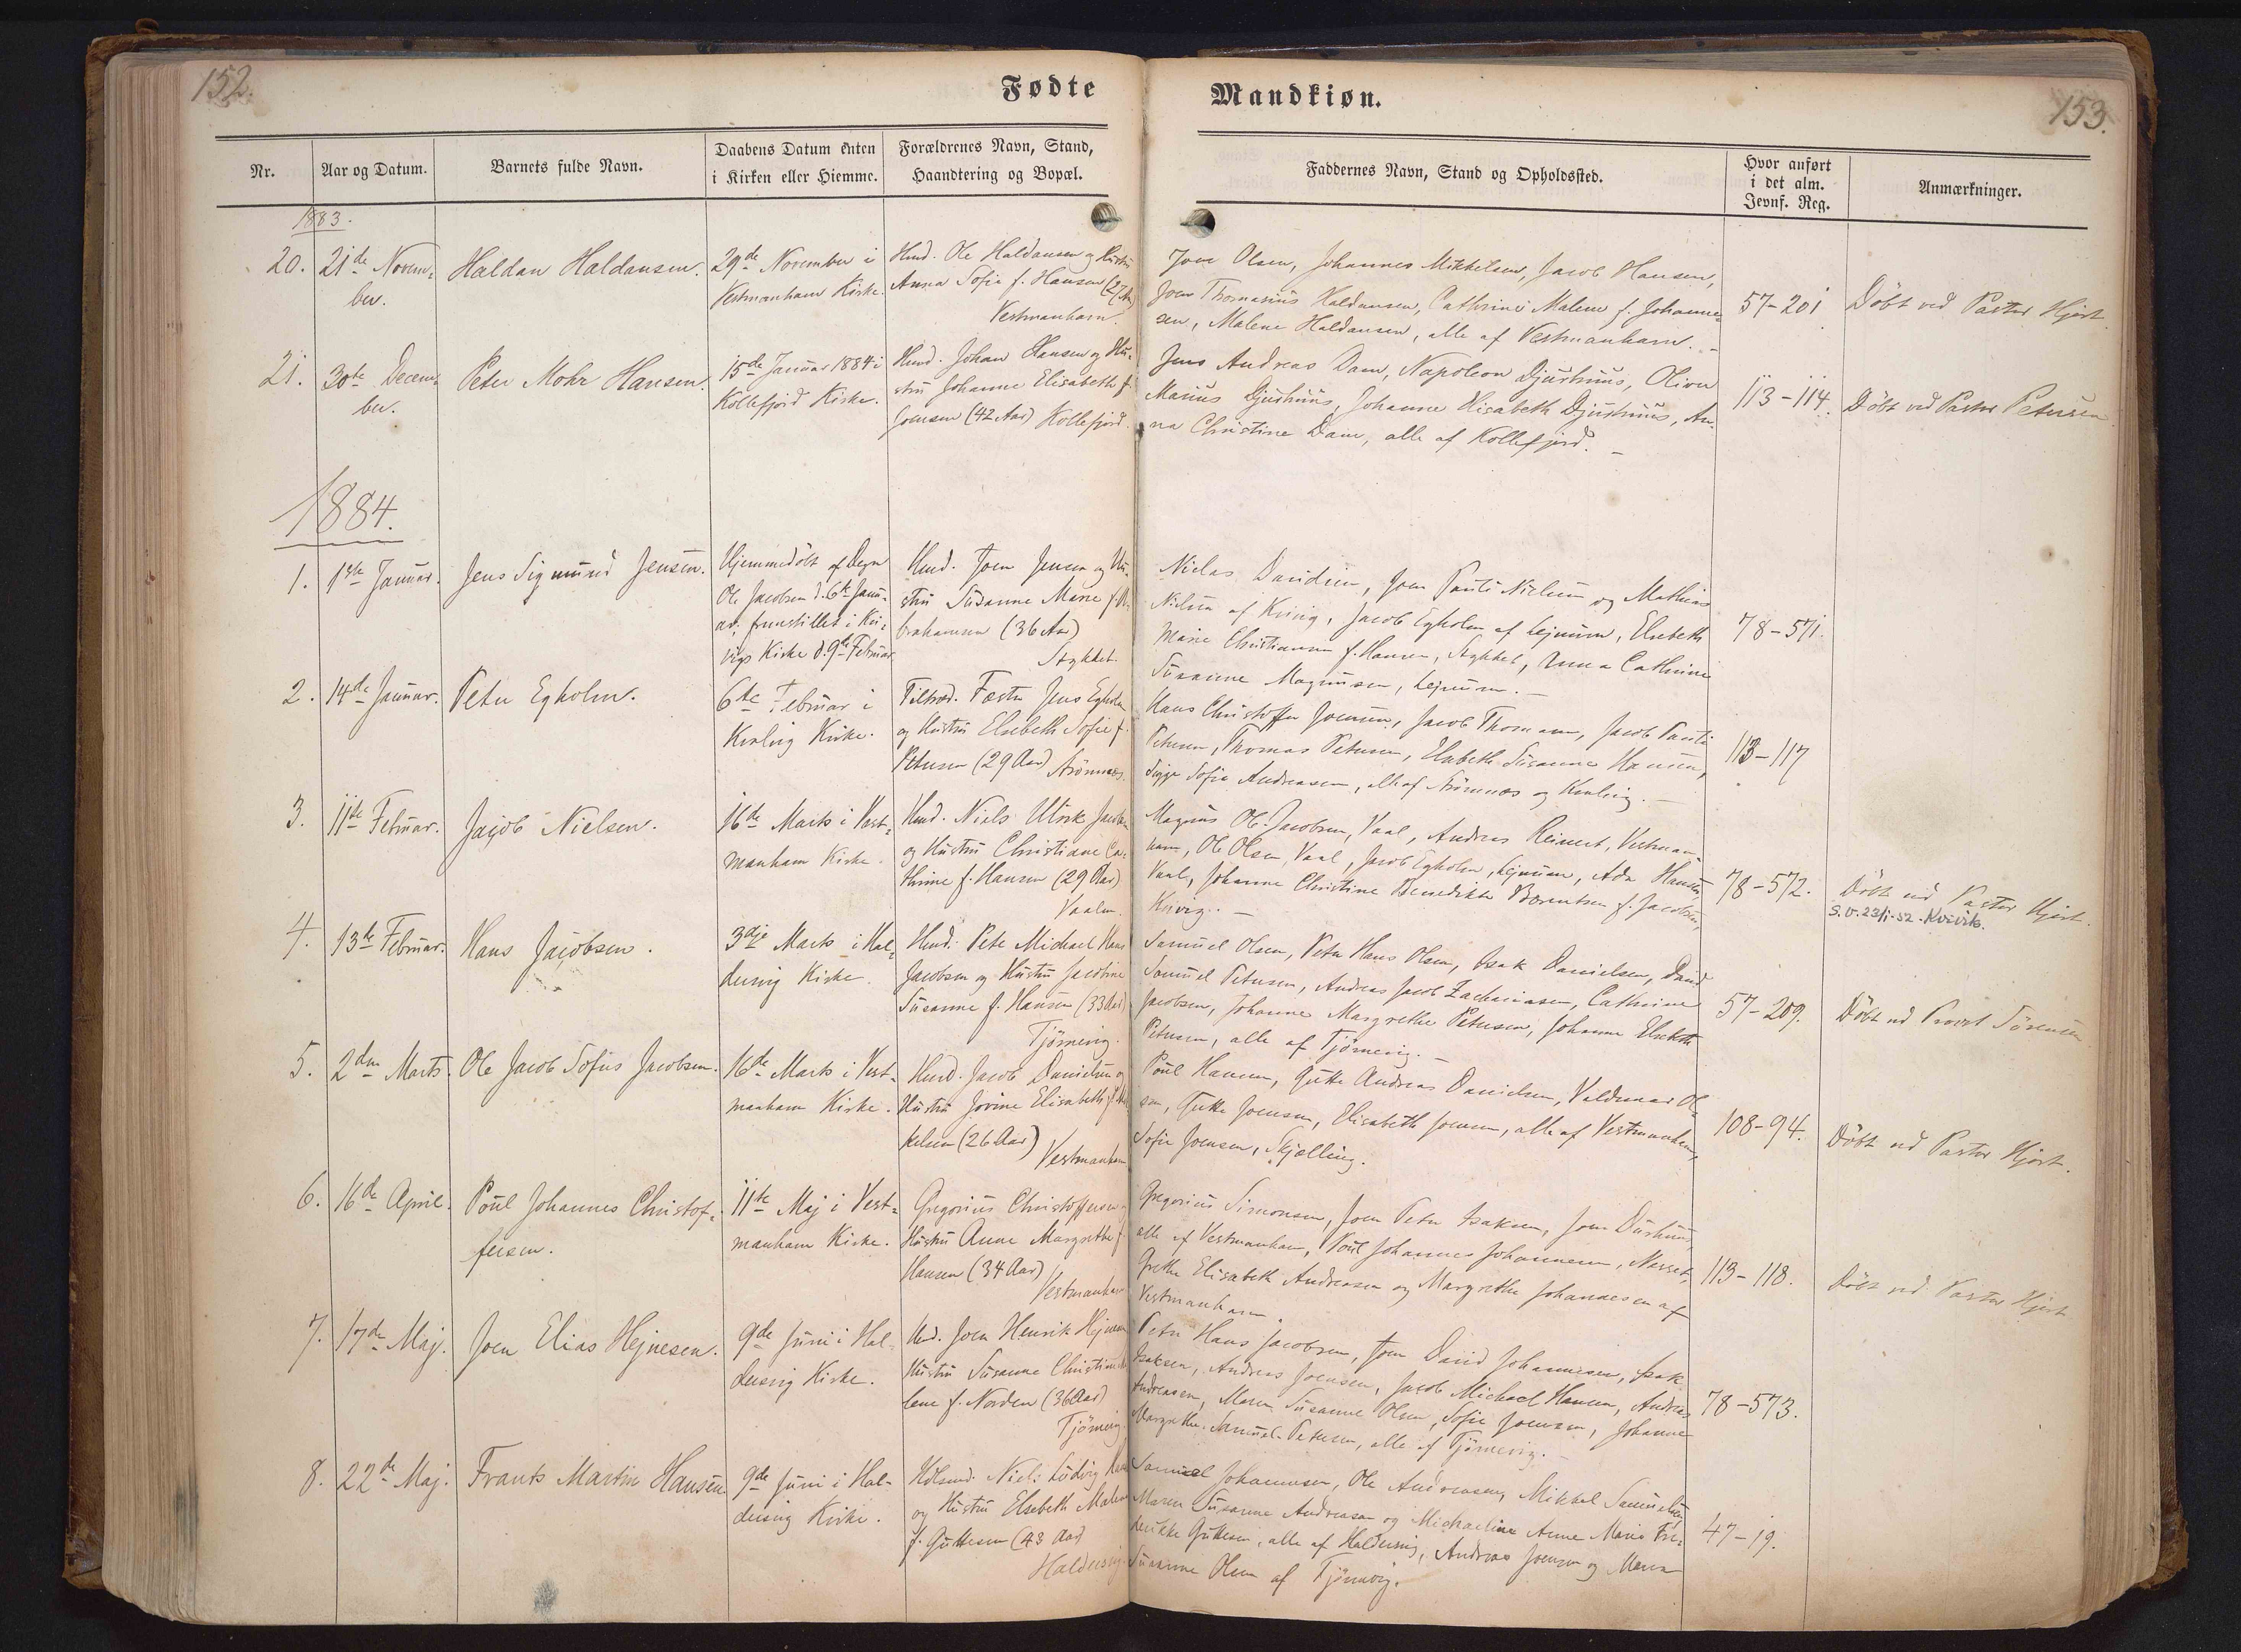 152.
Fødte
Nr.
Aar og Datum.
Barnets fulde Navn.
Daabens Datum enten
i Kirken eller Hiemme.
Forældrenes Navn, Stand,
Haandtering og Bopæl.
1883.
20.
21de Novem-
ber.
Haldan Haldansen.
29de November i
Vestmanhavn Kirke.
Hmd. Ole Haldansen og Hustru
Anna Sofie f. Hansen (27 Aar)
Vestmanhavn.
21.
30te Decem-
ber.
Peter Mohr Hansen.
15de Januar 1884 i
Kollefjord Kirke.
Hmd. Johan Hansen og Hu-
stru Johanne Elisabeth f.
Joensen (42 Aar) Kollefjord.
1884.
1.
1ste Januar.
Jens Sigmund Jensen.
Hjemmedöbt af Degn
Ole Jacobsen d. 6te Janu-
ar; fremstillet i Kvi-
vigs Kirke d. 9de Februar
Hmd. Joen Jensen og Hu-
stru Susanne Marie f. A-
brahamsen (36 Aar)
Stykket.
2.
14de Januar.
Peter Egholm.
6te Februar i
Kvalvig Kirke.
Tiltræd. Fæster Jens Egholm
og Hustru Elsebeth Sofie f.
Petersen (29 Aar) Nröimnæs.
3.
11te Februar.
Jacob Nielsen.
16de Marts i Vest-
manhavn Kirke.
Hmd. Niels Ulrik Jacobsen
og Hustru Christiane Ca-
thrine f. Hansen (29 Aar)
Vaalen.
4.
13de Februar.
Hans Jacobsen.
3die Marts i Hal-
dersvig Kirke.
Hmd. Peter Michael Hans
Jacobsen og Hustru Jacobine
Susanne f. Hansen (33 Aar)
Tjörnevig.
5.
2den Marts.
Ole Jacob Sofus Jacobsen.
16de Marts i Vest-
manhavn Kirke.
Hmd. Jacob Danielsen og
Hustru Jovine Elisabeth f. Mik-
kelsen (26 Aar)
Vestmanhavn
6.
16de April.
Poul Johannes Christof-
fersen.
11te Maj i Vest-
manhavn Kirke.
Gregorius Christoffersen og
Hustru Anne Margrethe f.
Hansen (34 Aar)
Vestmanhavn
7.
17de Maj.
Joen Elias Hejnesen.
9de Juni i Hal-
dersvig Kirke.
Hmd. Joen Henrik Hejnesen
Hustru Susanne Christine
f. Norden (36 Aar)
Tjörnevig.
8.
22de Maj.
Frants Martin Hansen
9de Juni i Hal-
dersvig Kirke.
Niels Ludvig Hansen
og Hustru Elsebeth Malene
f. Guttesen (43 Aar)
Haldersvig.
Mandkiøn.
153.
Faddernes Navn, Stand og Opholdssted.
Hvor anført
i det alm.
Jevnf. Reg.
Anmærkninger.
Joen Olsen, Johannes Mikkelsen, Jacob Hansen,
Joen Thomasius Haldansen, Cathrine Malene f. Johanne-
sen, Malene Haldansen, alle af Vestmanhavn. –
57-201
Döbt ved Pastor Hjort.
Jens Andreas Dam, Napoleon Djurhuus, Oliver
Marius Djurhuus, Johanne Elisabeth Djurhuus, An-
na Christine Dam, alle af Kollefjord. –
113-114.
Döbt ved Pastor Petersen
Niclas Davidsen, Joen Pauli Nielsen og Mathias
Nielsen af Kvivig, Jacob Egholm af Lejnum, Elsebeth
Marie Christiansen f. Hansen, Stykket, Anna Cathrine
Susanne Magnusen, Lejnum. –
78-571.
Hans Christoffer Joensen, Jacob Thomsen, Jacob Pauli
Petersen, Thomas Petersen, Elsebeth Susanne Hansen,
Sigga Sofie Andreasen, alle af Nröimnæs og Kvalvig. –
113-117
Magnus Ole Jacobsen, Vaal, Andreas Reinert, Vestman-
havn, Ole Olsen, Vaal, Jacob Egholm, Lejnum, Ada Hansen,
Vaal, Johanne Christine Benedikte Berentsen f. Jacobsen,
Kvivig. –
78-572.
Döbt ved Pastor Hjort.
S.V. 23/1-52. Kvivik.
Samuel Olsen, Peter Hans Olsen, Isak Danielsen, David
Samuel Petersen, Andreas Jacob Zachariasen, Cathrine
Jacobsen, Johanne Margrethe Petersen, Johanne Elsebeth
Petersen, alle af Tjörnevig. –
57-209.
Döbt ved Provst Sörensen
Poul Hansen, Gutte Andreas Danielsen, Valdemar Ol-
sen, Gutte Joensen, Elisabeth Joensen, alle af Vestmanhavn,
Sofie Joensen, Skjælling.
108-94.
Döbt ved Pastor Hjort.
Gregorius Simonsen, Joen Peter Isaksen, Joen Durhuus,
alle af Vestmanhavn, Poul Johannes Johannesen, Nasset,
Grethe Elisabeth Andreasen og Margrethe Johannesen af
Vestmanhavn.
113-118.
Döbt ved Pastor Hjort
Peter Hans Jacobsen, Joen David Johannesen, Isak
Isaksen, Andreas Joensen, Jacob Michael Hansen, Andreas
Andreasen, Maren Susanne Olsen, Sofie Joensen, Johanne
Margrethe Samuel Petersen, alle af Tjörnevig. –
78-573.
Samuel Johannesen, Ole Andreasen, Mikkel Samuelsen,
Maren Susanne Andreasen og Michaeline Anne Marie Fre-
derikke Guttesen, alle af Haldersvig, Andreas Joensen og Maren
Susanne Olsen af Tjörnevig.
47-19.